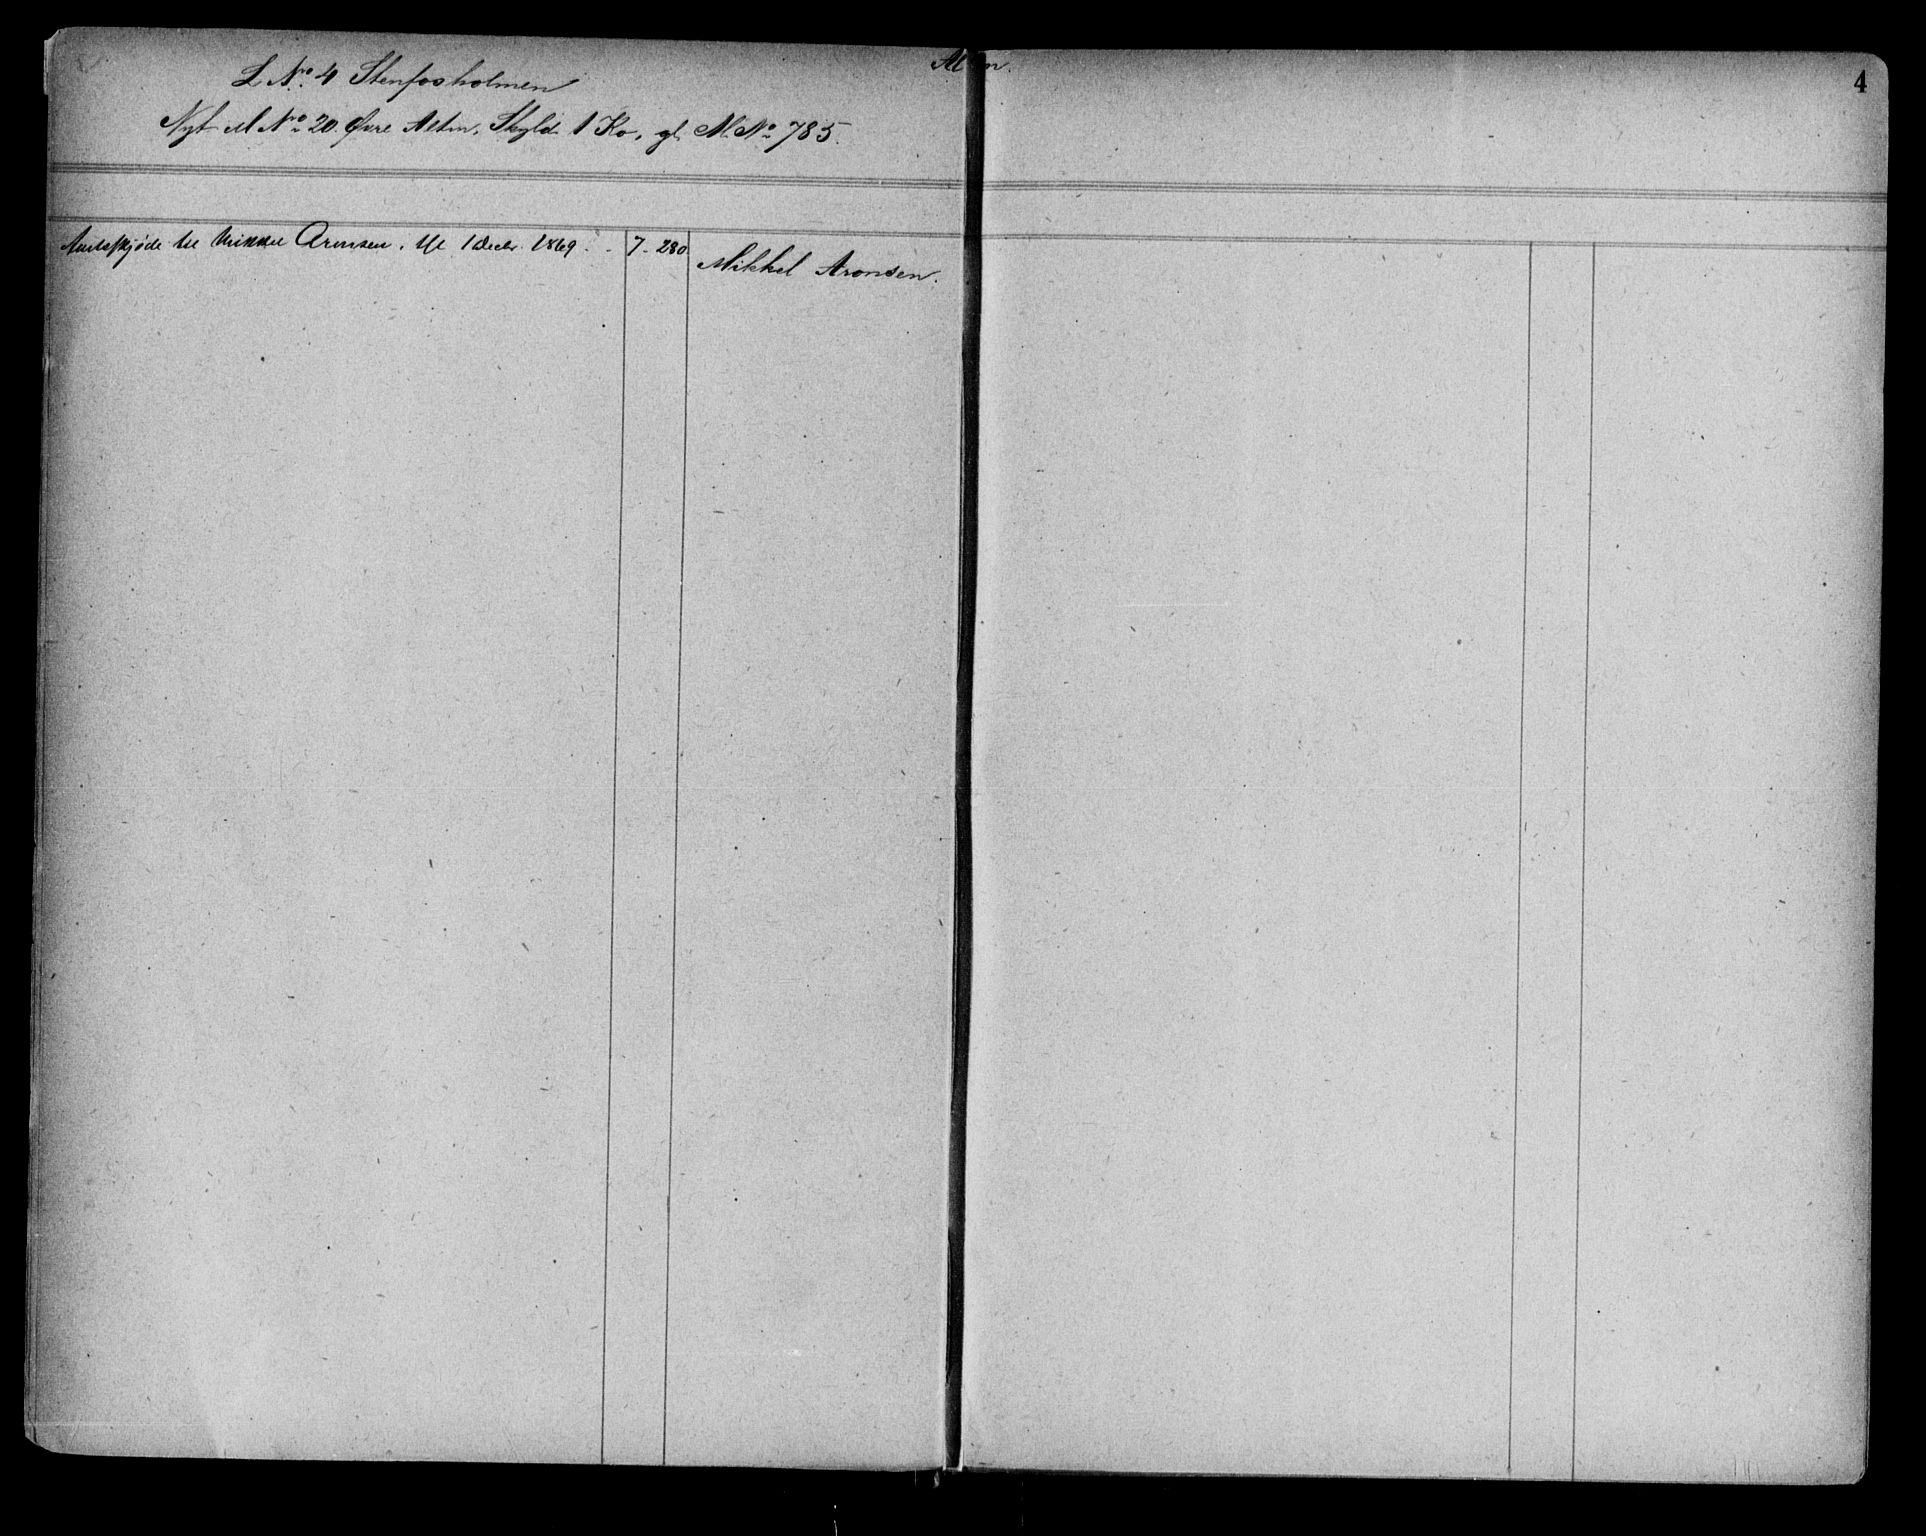 Alten.
4
L No. 4 Stenfosholmen
Nyt M No. 20 Øvre Alten, Skyld 1 Ko, gl. M. No. 785.
Amtsskjøde til Mikkel Aronsen, tgl. 1 Decbr. 1869. 7 - 280
Mikkel Aronsen.